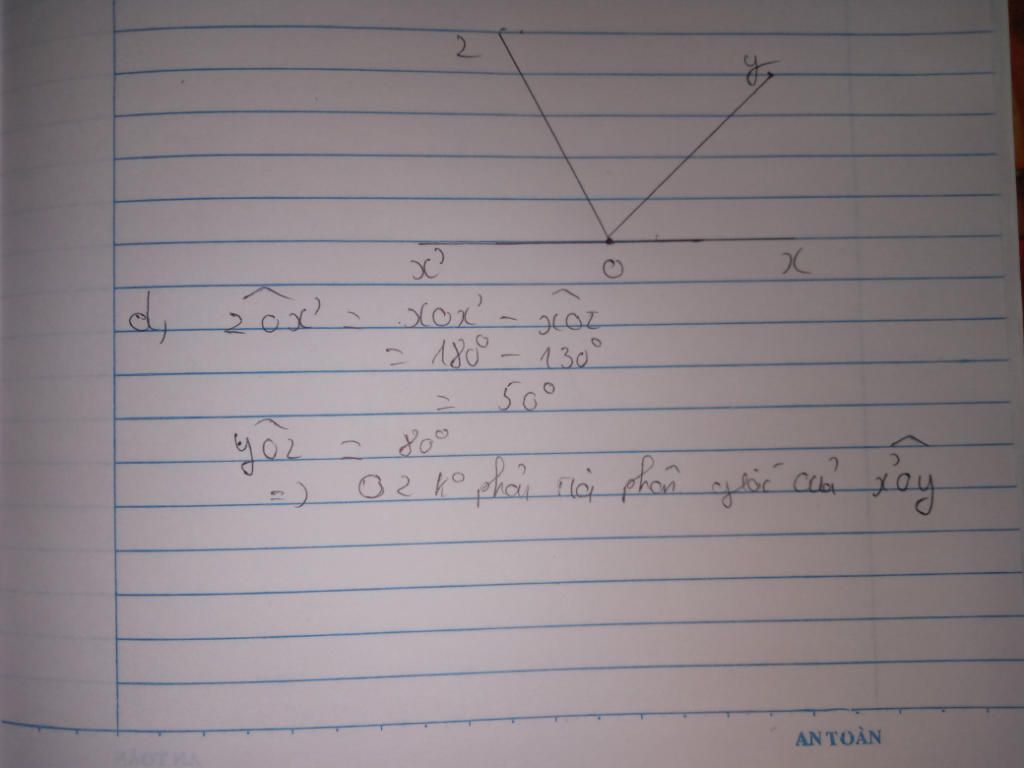 z
y
x'
O
x
d, zOx' = xOx' - xOz
= 180° - 130°
= 50°
yOz = 80°
=> Oz k° phải tia phân giác của x'Oy
AN TOÀN